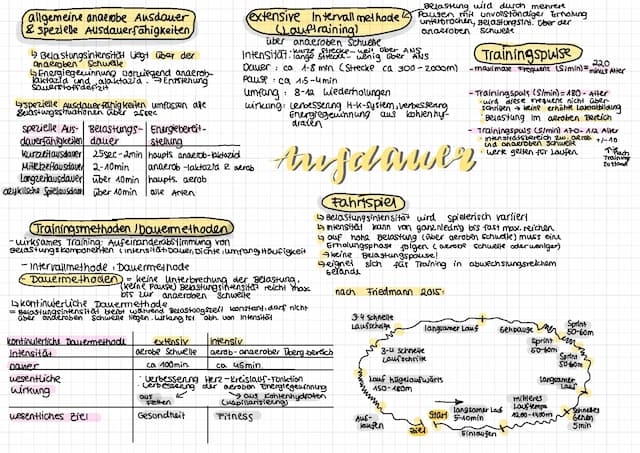 allgemeine anaerobe Ausdauer
& spezielle Ausdauerfähigkeiten
↳ Belastungsintensität liegt über der
anaeroben Schwelle
↳ Energiegewinnung vorwiegend anaerob-
laktazid und alaktazid → Entstehung
Sauerstoffdefizit
↳ spezielle Ausdauerfähigkeiten umfassen alle
Belastungssituationen über 25sec
spezielle Aus-
dauerfähigkeiten
Belastungs-
dauer
Energiebereit-
stellung
Kurzzeitausdauer 25sec-2min haupts. anaerob-laktazid
Mittelzeitausdauer 2-10min anaerob-laktazid & aerob
Langzeitausdauer über 10min haupts. aerob
azyklische Spielausdauer über 10min alle Arten
extensive Intervallmethode
(Lauftraining)
über anaeroben Schwelle
Intensität: kurze Strecke - weit über ANS
lange Strecke - wenig über ANS
Dauer: ca. 1-8 min (Strecke ca 300-2000m)
Pause: ca 1,5-4min
Umfang: 8-12 Wiederholungen
Wirkung: Verbesserung H-K-System, Verbesserung
Energiegewinnung aus Kohlenhy-
draten
Belastung wird durch mehrere
Pausen mit unvollständiger Erholung
unterbrochen, Belastungsint. über der
anaeroben Schwelle
Trainingspulse
- maximale Frequenz (S/min) = 220
minus Alter
- Trainingspuls (S/min) = 180 - Alter
↳ wird diese Frequenz nicht über-
schritten → keine erhöhte Laktatbildung
↳ Belastung im aeroben Bereich
- Trainingspuls (S/min) = 170 - 1/2 Alter
+/- 10
↳ Intensitätsbereich zw. aerob
und anaeroben Schwelle
↳ Werte gelten für Laufen
je nach
Training
Zustand
Ausdauer
Trainingsmethoden (Dauermethoden)
- wirksames Training: Aufeinanderabstimmung von
Belastungskomponenten (Intensität, Dauer, Dichte, Umfang, Häufigkeit)
- Intervallmethode, Dauermethode
- Dauermethoden = keine Unterbrechung der Belastung,
(keine Pause) Belastungsintensität reicht max.
bis zur anaeroben Schwelle
↳ kontinuierliche Dauermethode
= Belastungsintensität bleibt während Belastungszeit konstant, darf nicht
über anaeroben Schwelle liegen. Wirkung ist abh. von Intensität
kontinuierliche Dauermethode extensiv intensiv
Intensität aerobe Schwelle aerob-anaerober Übergangsbereich
Dauer ca 100min ca 45min
wesentliche
Wirkung
- Verbesserung Herz-Kreislauf-Funktion
- Verbesserung der aeroben Energiegewinnung
aus
Fetten
aus Kohlenhydraten
(Kapillarisierung)
wesentliches Ziel Gesundheit Fitness
Fahrtspiel
↳ Belastungsintensität wird spielerisch variiert
↳ Intensität kann von ganz niedrig bis fast max. reichen
↳ auf hohe Belastung (über aeroben Schwelle) muss eine
Erholungsphase folgen (aerobe Schwelle oder weniger)
→ keine Belastungspause!
↳ eignet sich für Training in abwechslungsreichem
Gelände
nach Friedmann 2015:
3-4 schnelle
Laufschritte
langsamer Lauf
Gehpause
Sprint
50-60m
Sprint
50-60m
Sprint
50-60m
3-4 schnelle
Laufschritte
langsamer
Lauf
Lauf hügelaufwärts
150-180m
mittleres
Lauftempo
1200-1400m
schnelles
Gehen
5min
langsamer Lauf
5-10min
Start
Einlaufen
Aus-
laufen
Ziel